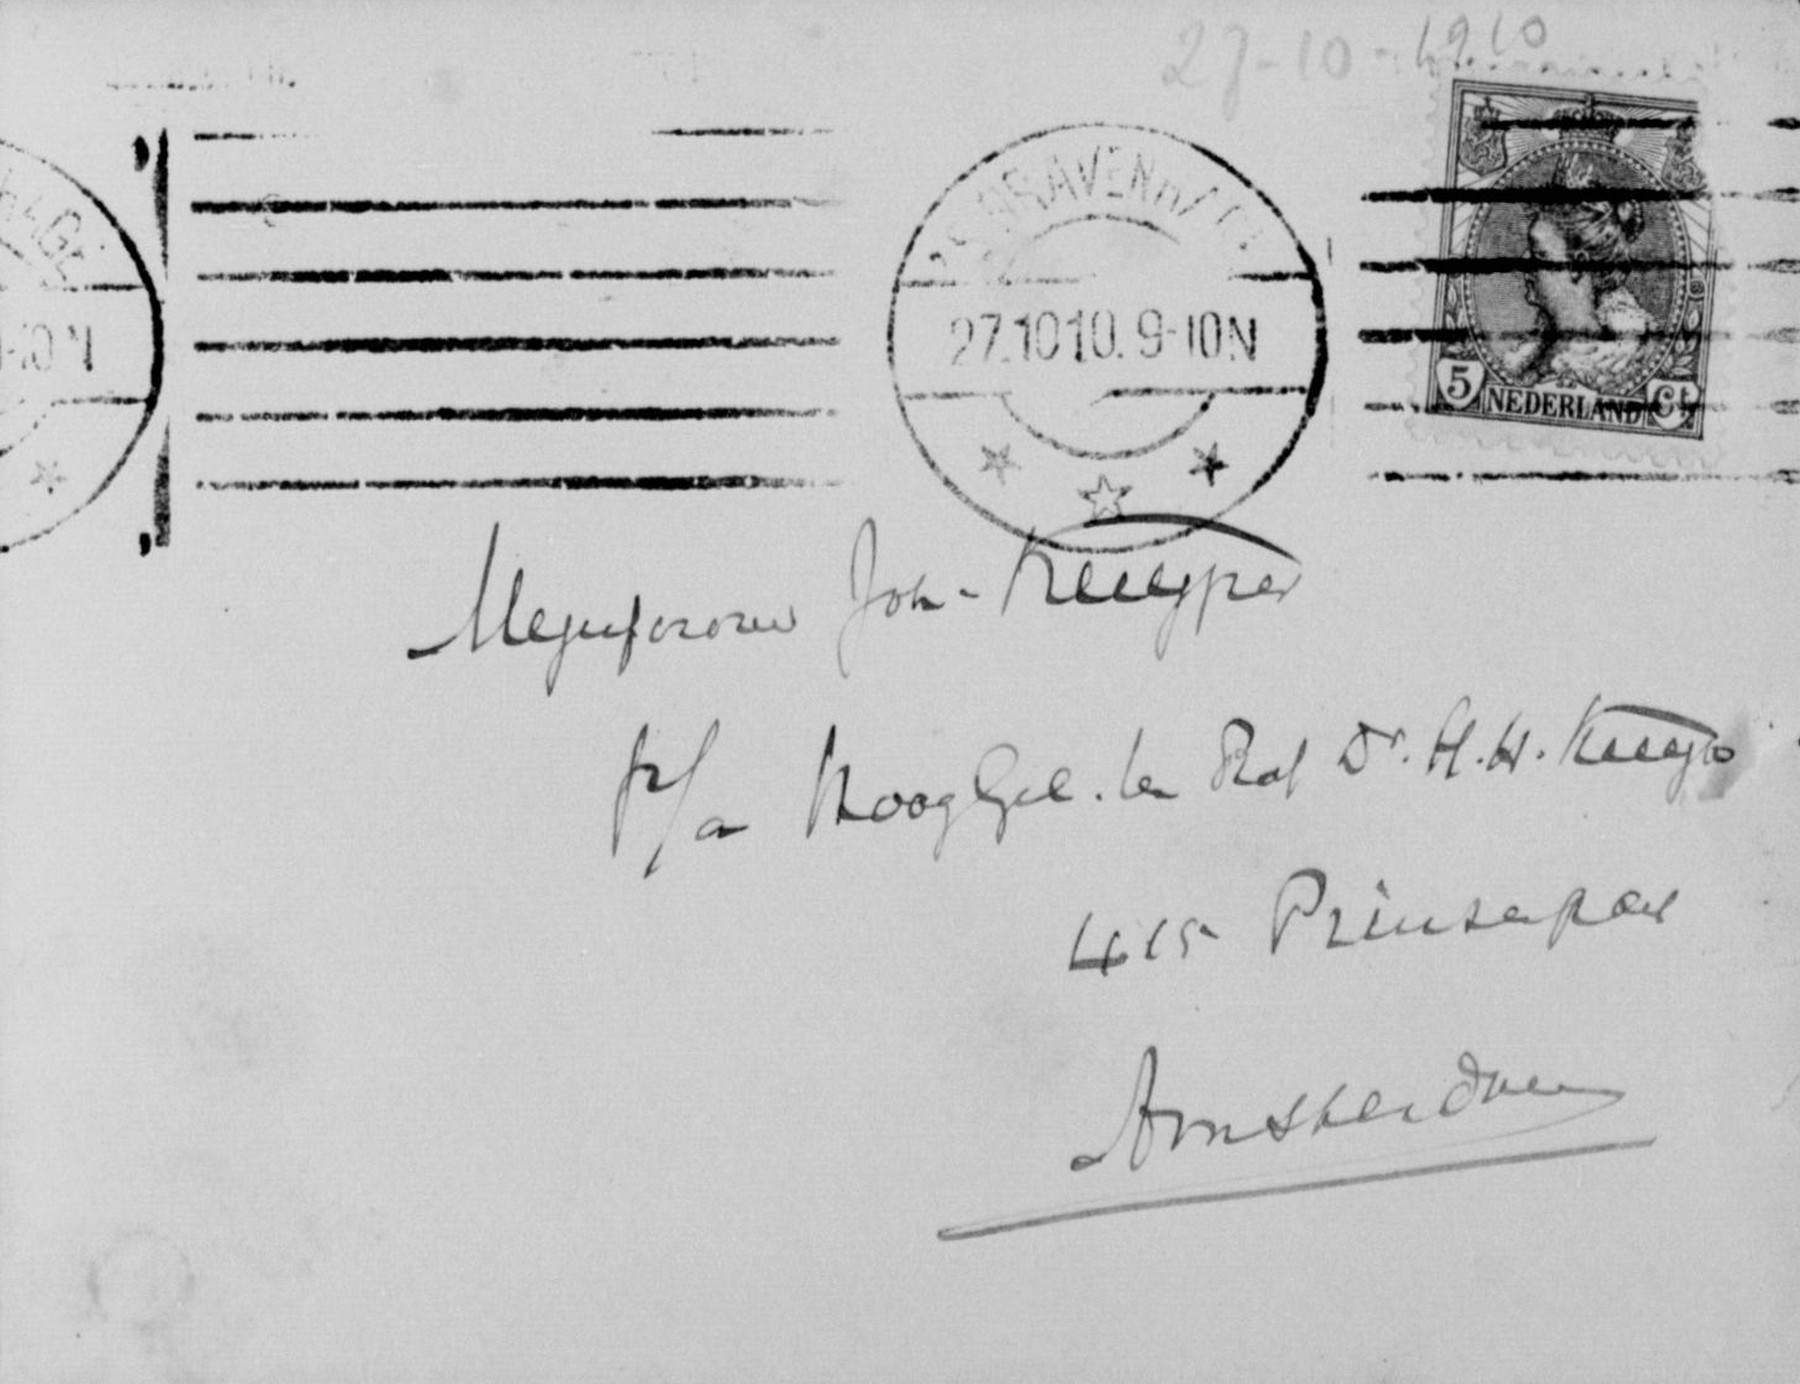 27-10-1910
'S GRAVENHAGE
27.10 10. 9-10N
5 NEDERLAND Ct
Mejufvrouw Joh. Kuyper
p/a HoogGel. her Prof Dr. H.H. Kuyper
415 Prinsengr
Amsterdam